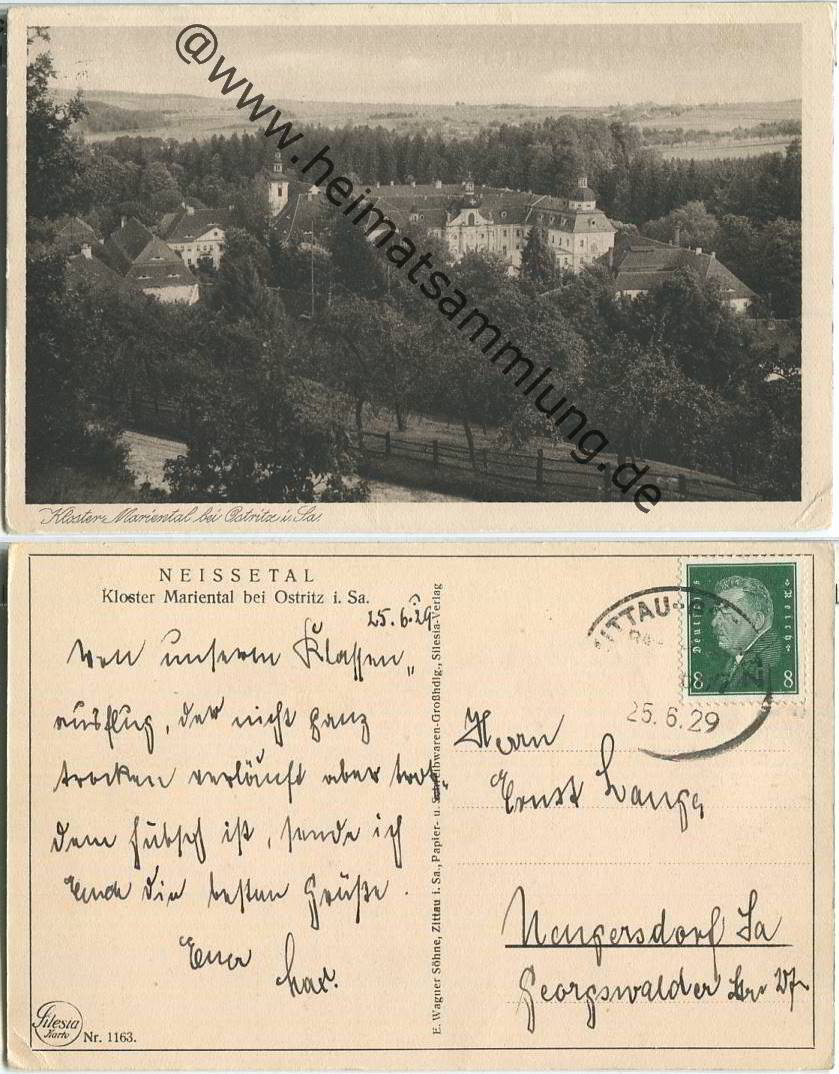 @www.heimatsammlung.de
Kloster Mariental bei Ostritz i. Sa.
NEISSETAL
Kloster Mariental bei Ostritz i. Sa.
25.6.29
Von unserm Klassen„
ausflug, der nicht ganz
trocken verläuft aber trotz„
dem hübsch ist, sende ich
Euch die besten Grüße.
Euer
E. Wagner Söhne, Zittau i. Sa., Papier- u. Schreibwaren-Großhdlg., Silesia-Verlag
Silesia
Karte
Nr. 1163.
Deutsches Reich
8 8
ZITTAU
25.6.29
Herrn
Ernst Lange
Neugersdorf Sa
Georgswalder Str.